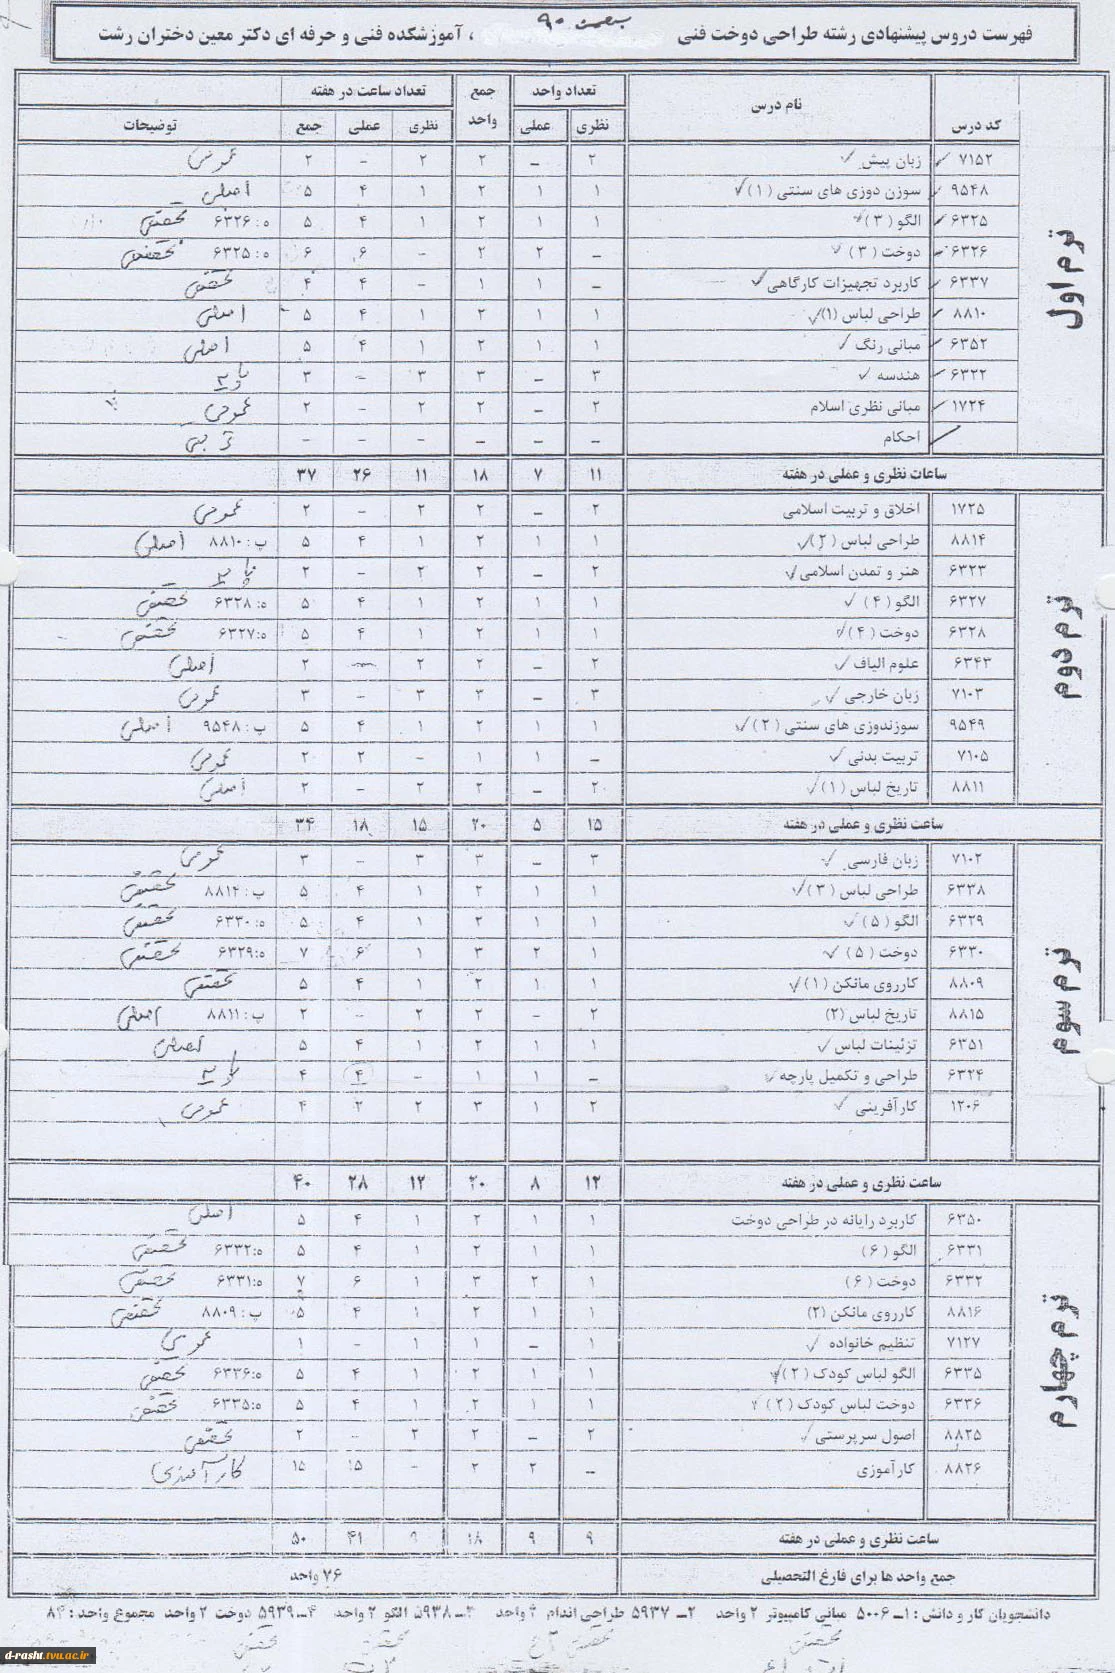 بهمن ۹۰
فهرست دروس پیشنهادی رشته طراحی دوخت فنی ، آموزشکده فنی و حرفه ای دکتر معین دختران رشت
کد درس نام درس تعداد واحد جمع واحد تعداد ساعت در هفته
نظری عملی نظری عملی جمع توضیحات
ترم اول
۷۱۵۲ زبان پیش ۲ – ۲ ۲ – ۲ عمومی
۹۵۴۸ سوزن دوزی های سنتی (۱) ۱ ۱ ۲ ۱ ۴ ۵ اصلی
۶۳۲۵ الگو (۳) ۱ ۱ ۲ ۱ ۴ ۵ ه: ۶۳۲۶ تخصصی
۶۳۲۶ دوخت (۳) – ۲ ۲ – ۶ ۶ ه: ۶۳۲۵ تخصصی
۶۳۳۷ کاربرد تجهیزات کارگاهی – ۱ ۱ – ۴ ۴ تخصصی
۸۸۱۰ طراحی لباس (۱) ۱ ۱ ۲ ۱ ۴ ۵ اصلی
۶۳۵۲ مبانی رنگ ۱ ۱ ۲ ۱ ۴ ۵ اصلی
۶۳۲۲ هندسه ۳ – ۳ ۳ – ۳ پایه
۱۷۲۴ مبانی نظری اسلام ۲ – ۲ ۲ – ۲ عمومی
احکام – – – – – –
ساعات نظری و عملی در هفته ۱۱ ۷ ۱۸ ۱۱ ۲۶ ۳۷
ترم دوم
۱۷۲۵ اخلاق و تربیت اسلامی ۲ – ۲ ۲ – ۲ عمومی
۸۸۱۴ طراحی لباس (۲) ۱ ۱ ۲ ۱ ۴ ۵ پ: ۸۸۱۰ اصلی
۶۳۲۳ هنر و تمدن اسلامی ۲ – ۲ ۲ – ۲ پایه
۶۳۲۷ الگو (۴) ۱ ۱ ۲ ۱ ۴ ۵ ه: ۶۳۲۸ تخصصی
۶۳۲۸ دوخت (۴) ۱ ۱ ۲ ۱ ۴ ۵ ه: ۶۳۲۷ تخصصی
۶۳۴۳ علوم الیاف ۲ – ۲ ۲ – ۲ اصلی
۷۱۰۳ زبان خارجی ۳ – ۳ ۳ – ۳ عمومی
۹۵۴۹ سوزندوزی های سنتی (۲) ۱ ۱ ۲ ۱ ۴ ۵ پ: ۹۵۴۸ اصلی
۷۱۰۵ تربیت بدنی – ۱ ۱ – ۲ ۲ عمومی
۸۸۱۱ تاریخ لباس (۱) ۲ – ۲ ۲ – ۲ اصلی
ساعت نظری و عملی در هفته ۱۵ ۵ ۲۰ ۱۵ ۱۸ ۳۴
ترم سوم
۷۱۰۲ زبان فارسی ۳ – ۳ ۳ – ۳ عمومی
۶۳۳۸ طراحی لباس (۳) ۱ ۱ ۲ ۱ ۴ ۵ پ: ۸۸۱۴ تخصصی
۶۳۲۹ الگو (۵) ۱ ۱ ۲ ۱ ۴ ۵ ه: ۶۳۳۰ تخصصی
۶۳۳۰ دوخت (۵) ۱ ۲ ۳ ۱ ۶ ۷ ه: ۶۳۲۹ تخصصی
۸۸۰۹ کارروی مانکن (۱) ۱ ۱ ۲ ۱ ۴ ۵ تخصصی
۸۸۱۵ تاریخ لباس (۲) ۲ – ۲ ۲ – ۲ پ: ۸۸۱۱ اصلی
۶۳۵۱ تزئینات لباس ۱ ۱ ۲ ۱ ۴ ۵ اصلی
۶۳۲۴ طراحی و تکمیل پارچه – ۱ ۱ – ۴ ۴ پایه
۱۲۰۶ کارآفرینی ۲ ۱ ۳ ۲ ۲ ۴ عمومی
ساعت نظری و عملی در هفته ۱۲ ۸ ۲۰ ۱۲ ۲۸ ۴۰
ترم چهارم
۶۳۵۰ کاربرد رایانه در طراحی دوخت ۱ ۱ ۲ ۱ ۴ ۵ اصلی
۶۳۳۱ الگو (۶) ۱ ۱ ۲ ۱ ۴ ۵ ه: ۶۳۳۲ تخصصی
۶۳۳۲ دوخت (۶) ۱ ۲ ۳ ۱ ۶ ۷ ه: ۶۳۳۱ تخصصی
۸۸۱۶ کارروی مانکن (۲) ۱ ۱ ۲ ۱ ۴ ۵ پ: ۸۸۰۹ تخصصی
۷۱۲۷ تنظیم خانواده ۱ – ۱ ۱ – ۱ عمومی
۶۳۳۵ الگو لباس کودک (۲) ۱ ۱ ۲ ۱ ۴ ۵ ه: ۶۳۳۶ تخصصی
۶۳۳۶ دوخت لباس کودک (۲) ۱ ۱ ۲ ۱ ۴ ۵ ه: ۶۳۳۵ تخصصی
۸۸۲۵ اصول سرپرستی ۲ – ۲ ۲ – ۲ تخصصی
۸۸۲۶ کارآموزی – ۲ ۲ – ۱۵ ۱۵ کارآموزی
ساعت نظری و عملی در هفته ۹ ۹ ۱۸ ۹ ۴۱ ۵۰
جمع واحد ها برای فارغ التحصیلی ۷۶ واحد
دانشجویان کار و دانش : ۱ــ ۵۰۰۶ مبانی کامپیوتر ۲ واحد ۲ــ ۵۹۳۷ طراحی اندام ۲ واحد ۳ــ ۵۹۳۸ الگو ۲ واحد ۴ــ ۵۹۳۹ دوخت ۲ واحد مجموع واحد : ۸۴
d-rasht.tvu.ac.ir